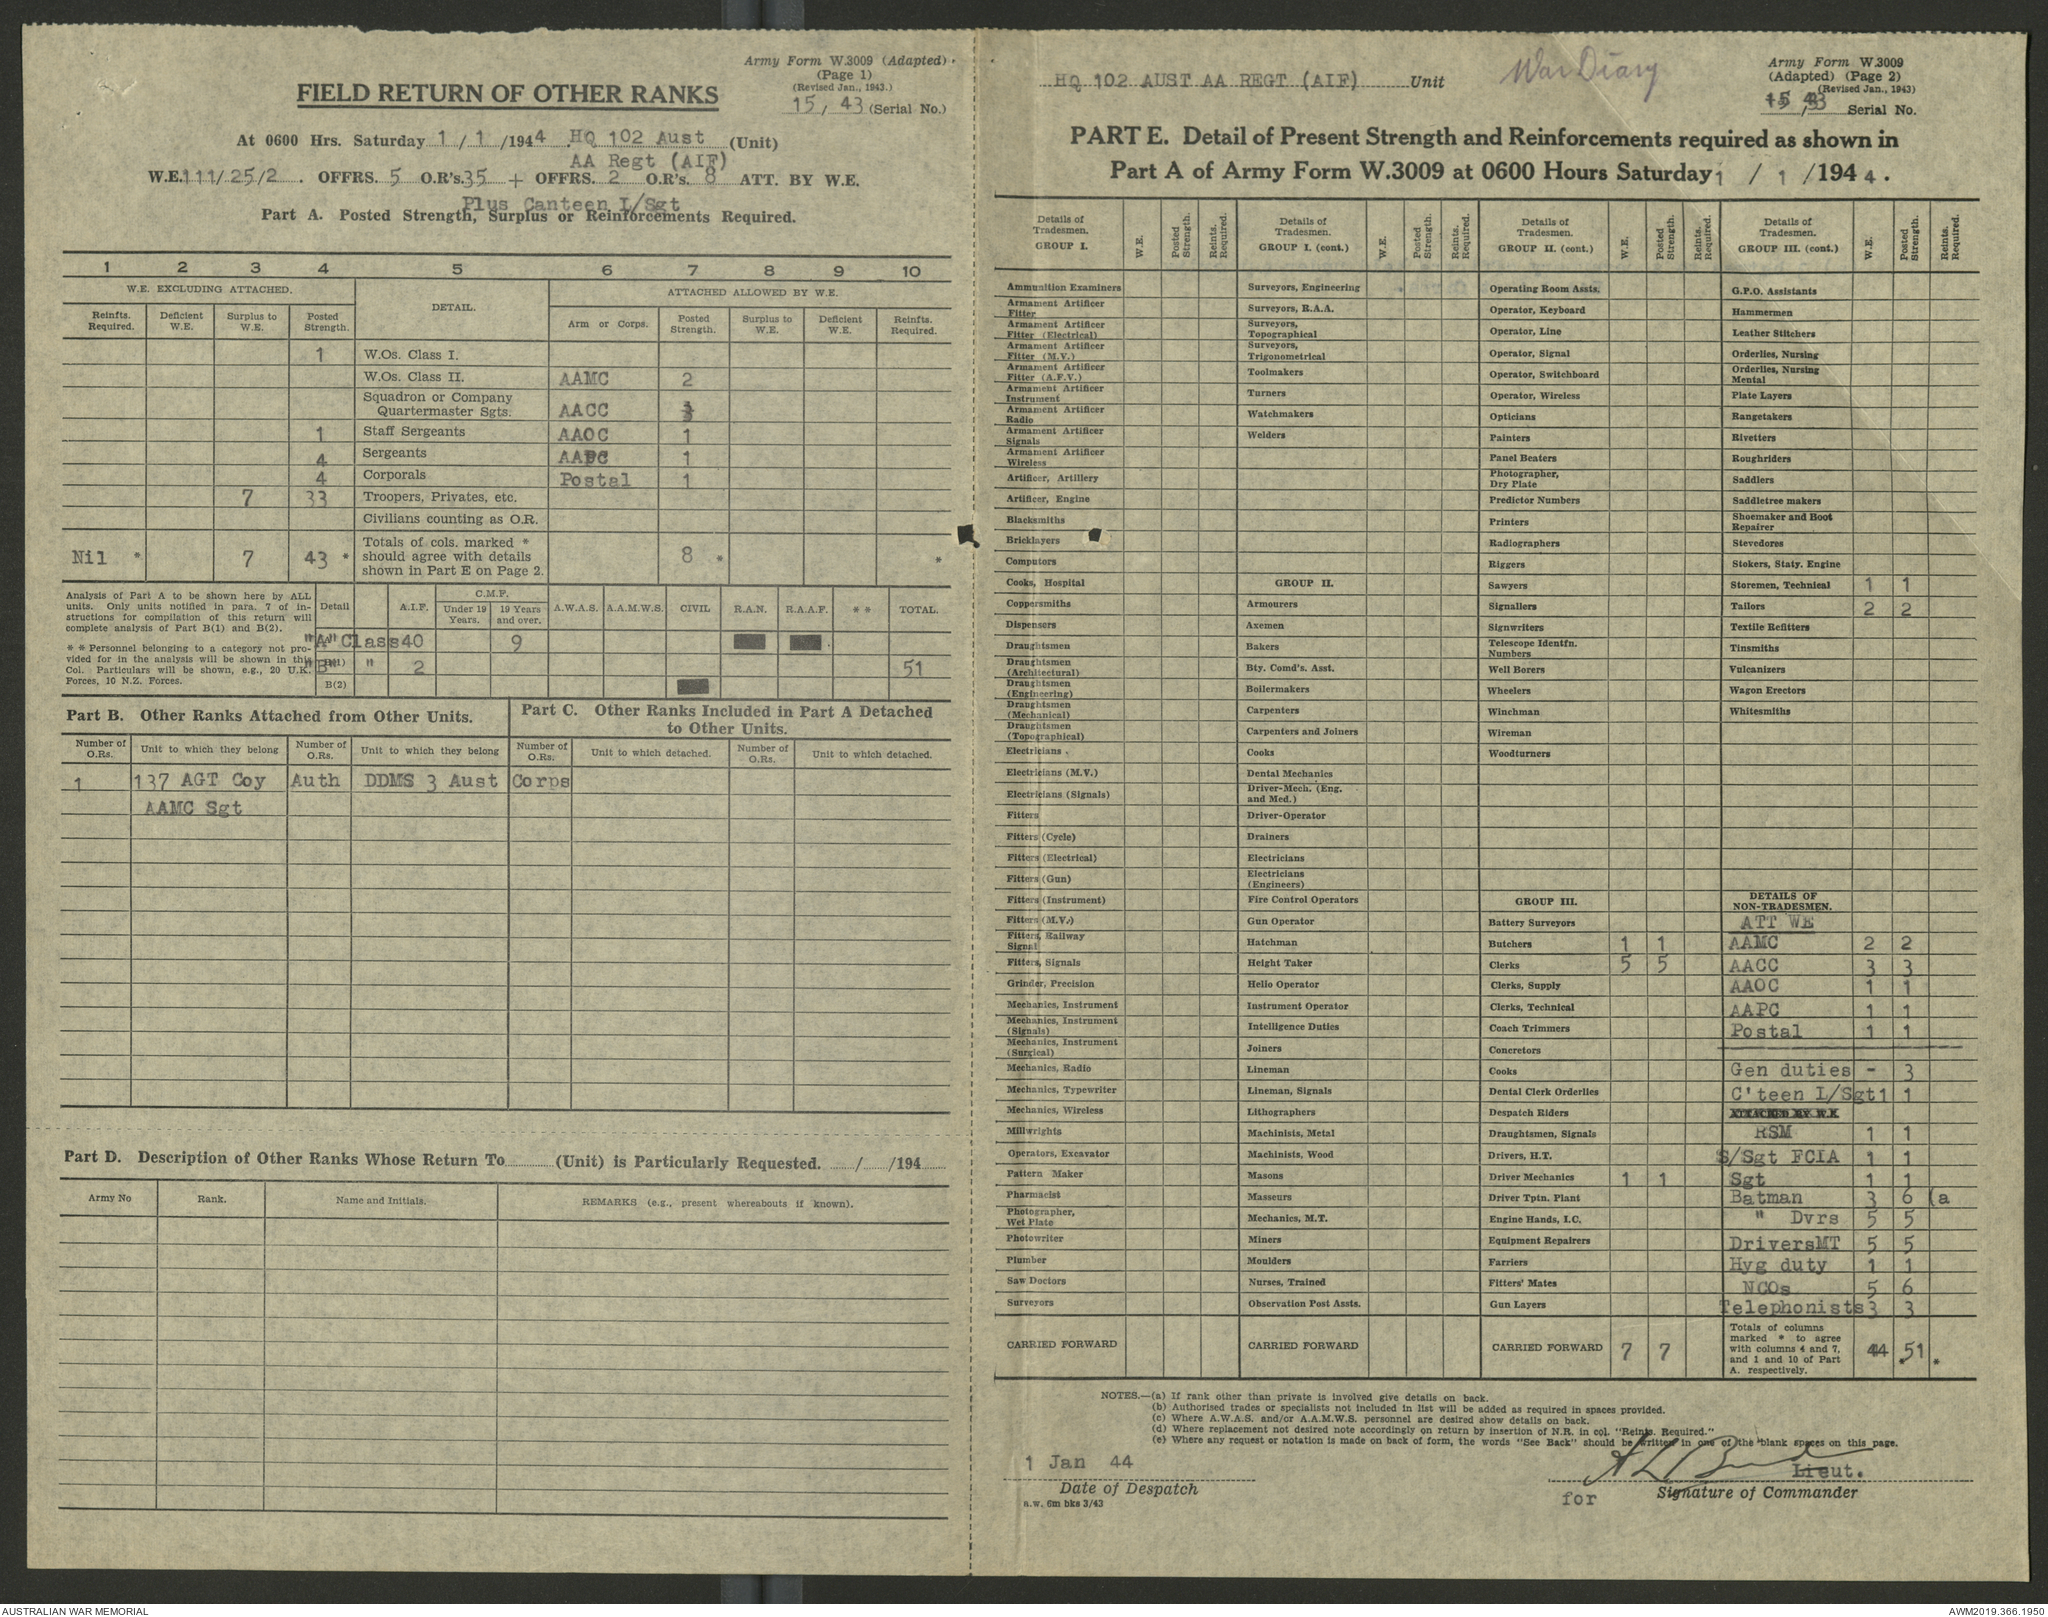 Army Form W.3009 (Adapted)
(Page 1)
(Revised Jan., 1943.)
15, 43 (Serial No.)
FIELD RETURN OF OTHER RANKS
At 0600 Hrs. Saturday 1 / 1 /1944 HQ 102 Aust (Unit)
AA Regt (AIF)
W.E.111/25/2 . OFFRS. 5 O.R's.35 + OFFRS. 2 O.R's. 8 ATT. BY W.E.
Plus Canteen I/Sgt
Part A. Posted Strength, Surplus or Reinforcements Required.
1 2 3 4 5 6 7 8 9 10
W.E. EXCLUDING ATTACHED. DETAIL. ATTACHED ALLOWED BY W.E.
Reinfts. Required. Deficient W.E. Surplus to W.E. Posted Strength. Arm or Corps. Posted Strength. Surplus to W.E. Deficient W.E. Reinfts. Required.
1 W.Os. Class I.
W.Os. Class II. AAMC 2
Squadron or Company
Quartermaster Sgts. AACC 3
1 Staff Sergeants AAOC 1
4 Sergeants AAPC 1
4 Corporals Postal 1
7 33 Troopers, Privates, etc.
Civilians counting as O.R.
Nil * 7 43 * Totals of cols. marked * should agree with details shown in Part E on Page 2. 8 * *
Analysis of Part A to be shown here by ALL units. Only units notified in para. 7 of instructions for compilation of this return will complete analysis of Part B(1) and B(2).
* * Personnel belonging to a category not provided for in the analysis will be shown in this Col. Particulars will be shown, e.g., 20 U.K. Forces, 10 N.Z. Forces.
Detail A.I.F. C.M.F. Under 19 Years. 19 Years and over. A.W.A.S. A.A.M.W.S. CIVIL R.A.N. R.A.A.F. * * TOTAL.
"A" Class 40 9
"B" " 2 51
B(2)
Part B. Other Ranks Attached from Other Units.
Part C. Other Ranks Included in Part A Detached to Other Units.
Number of O.Rs. Unit to which they belong Number of O.Rs. Unit to which they belong Number of O.Rs. Unit to which detached. Number of O.Rs. Unit to which detached.
1 137 AGT Coy Auth DDMS 3 Aust Corps
AAMC Sgt
Part D. Description of Other Ranks Whose Return To (Unit) is Particularly Requested. / /194
Army No Rank. Name and Initials. REMARKS (e.g., present whereabouts if known).
HQ 102 AUST AA REGT (AIF) Unit
War Diary
Army Form W.3009
(Adapted) (Page 2)
(Revised Jan., 1943)
Serial No.
PART E. Detail of Present Strength and Reinforcements required as shown in
Part A of Army Form W.3009 at 0600 Hours Saturday 1 / 1 /1944.
Details of Tradesmen. GROUP I. W.E. Posted Strength. Reints. Required.
Ammunition Examiners
Armament Artificer Fitter
Armament Artificer Fitter (Electrical)
Armament Artificer Fitter (M.V.)
Armament Artificer Fitter (A.F.V.)
Armament Artificer Instrument
Armament Artificer Radio
Armament Artificer Signals
Armament Artificer Wireless
Artificer, Artillery
Artificer, Engine
Blacksmiths
Bricklayers
Computors
Cooks, Hospital
Coppersmiths
Dispensers
Draughtsmen
Draughtsmen (Architectural)
Draughtsmen (Engineering)
Draughtsmen (Mechanical)
Draughtsmen (Topographical)
Electricians
Electricians (M.V.)
Electricians (Signals)
Fitters
Fitters (Cycle)
Fitters (Electrical)
Fitters (Gun)
Fitters (Instrument)
Fitters (M.V.)
Fitters, Railway Signal
Fitters, Signals
Grinder, Precision
Mechanics, Instrument
Mechanics, Instrument (Signals)
Mechanics, Instrument (Surgical)
Mechanics, Radio
Mechanics, Typewriter
Mechanics, Wireless
Millwrights
Operators, Excavator
Pattern Maker
Pharmacist
Photographer, Wet Plate
Photowriter
Plumber
Saw Doctors
Surveyors
CARRIED FORWARD
Details of Tradesmen. GROUP I. (cont.) W.E. Posted Strength. Reints. Required.
Surveyors, Engineering
Surveyors, R.A.A.
Surveyors, Topographical
Surveyors, Trigonometrical
Toolmakers
Turners
Watchmakers
Welders
GROUP II.
Armourers
Axemen
Bakers
Bty. Comd's. Asst.
Boilermakers
Carpenters
Carpenters and Joiners
Cooks
Dental Mechanics
Driver-Mech. (Eng. and Med.)
Driver-Operator
Drainers
Electricians
Electricians (Engineers)
Fire Control Operators
Gun Operator
Hatchman
Height Taker
Helio Operator
Instrument Operator
Intelligence Duties
Joiners
Lineman
Lineman, Signals
Lithographers
Machinists, Metal
Machinists, Wood
Masons
Masseurs
Mechanics, M.T.
Miners
Moulders
Nurses, Trained
Observation Post Assts.
CARRIED FORWARD
Details of Tradesmen. GROUP II. (cont.) W.E. Posted Strength. Reints. Required.
Operating Room Assts.
Operator, Keyboard
Operator, Line
Operator, Signal
Operator, Switchboard
Operator, Wireless
Opticians
Painters
Panel Beaters
Photographer, Dry Plate
Predictor Numbers
Printers
Radiographers
Riggers
Sawyers
Signallers
Signwriters
Telescope Identfn. Numbers
Well Borers
Wheelers
Winchman
Wireman
Woodturners
GROUP III.
Battery Surveyors
Butchers 1 1
Clerks 5 5
Clerks, Supply
Clerks, Technical
Coach Trimmers
Concretors
Cooks
Dental Clerk Orderlies
Despatch Riders
Draughtsmen, Signals
Drivers, H.T.
Driver Mechanics 1 1
Driver Tptn. Plant
Engine Hands, I.C.
Equipment Repairers
Farriers
Fitters' Mates
Gun Layers
CARRIED FORWARD 7 7
Details of Tradesmen. GROUP III. (cont.) W.E. Posted Strength. Reints. Required.
G.P.O. Assistants
Hammermen
Leather Stitchers
Orderlies, Nursing
Orderlies, Nursing Mental
Plate Layers
Rangetakers
Rivetters
Roughriders
Saddlers
Saddletree makers
Shoemaker and Boot Repairer
Stevedores
Stokers, Staty. Engine
Storemen, Technical 1 1
Tailors 2 2
Textile Refitters
Tinsmiths
Vulcanizers
Wagon Erectors
Whitesmiths
DETAILS OF NON-TRADESMEN.
ATT WE
AAMC 2 2
AACC 3 3
AAOC 1 1
AAPC 1 1
Postal 1 1
Gen duties - 3
C'teen I/Sgt 1 1
ATTACHED BY W.E
RSM 1 1
S/Sgt FCIA 1 1
Sgt 1 1
Batman 3 6 (a
" Dvrs 5 5
DriversMT 5 5
Hyg duty 1 1
NCOs 5 6
Telephonists 3 3
Totals of columns marked * to agree with columns 4 and 7, and 1 and 10 of Part A. respectively. 44 51 *
NOTES.—(a) If rank other than private is involved give details on back.
(b) Authorised trades or specialists not included in list will be added as required in spaces provided.
(c) Where A.W.A.S. and/or A.A.M.W.S. personnel are desired show details on back.
(d) Where replacement not desired note accordingly on return by insertion of N.R. in col. "Reints. Required."
(e) Where any request or notation is made on back of form, the words "See Back" should be written in one of the blank spaces on this page.
1 Jan 44
Date of Despatch
a.w. 6m bks 3/43
Lieut.
for Signature of Commander
AUSTRALIAN WAR MEMORIAL
AWM2019.366.1950